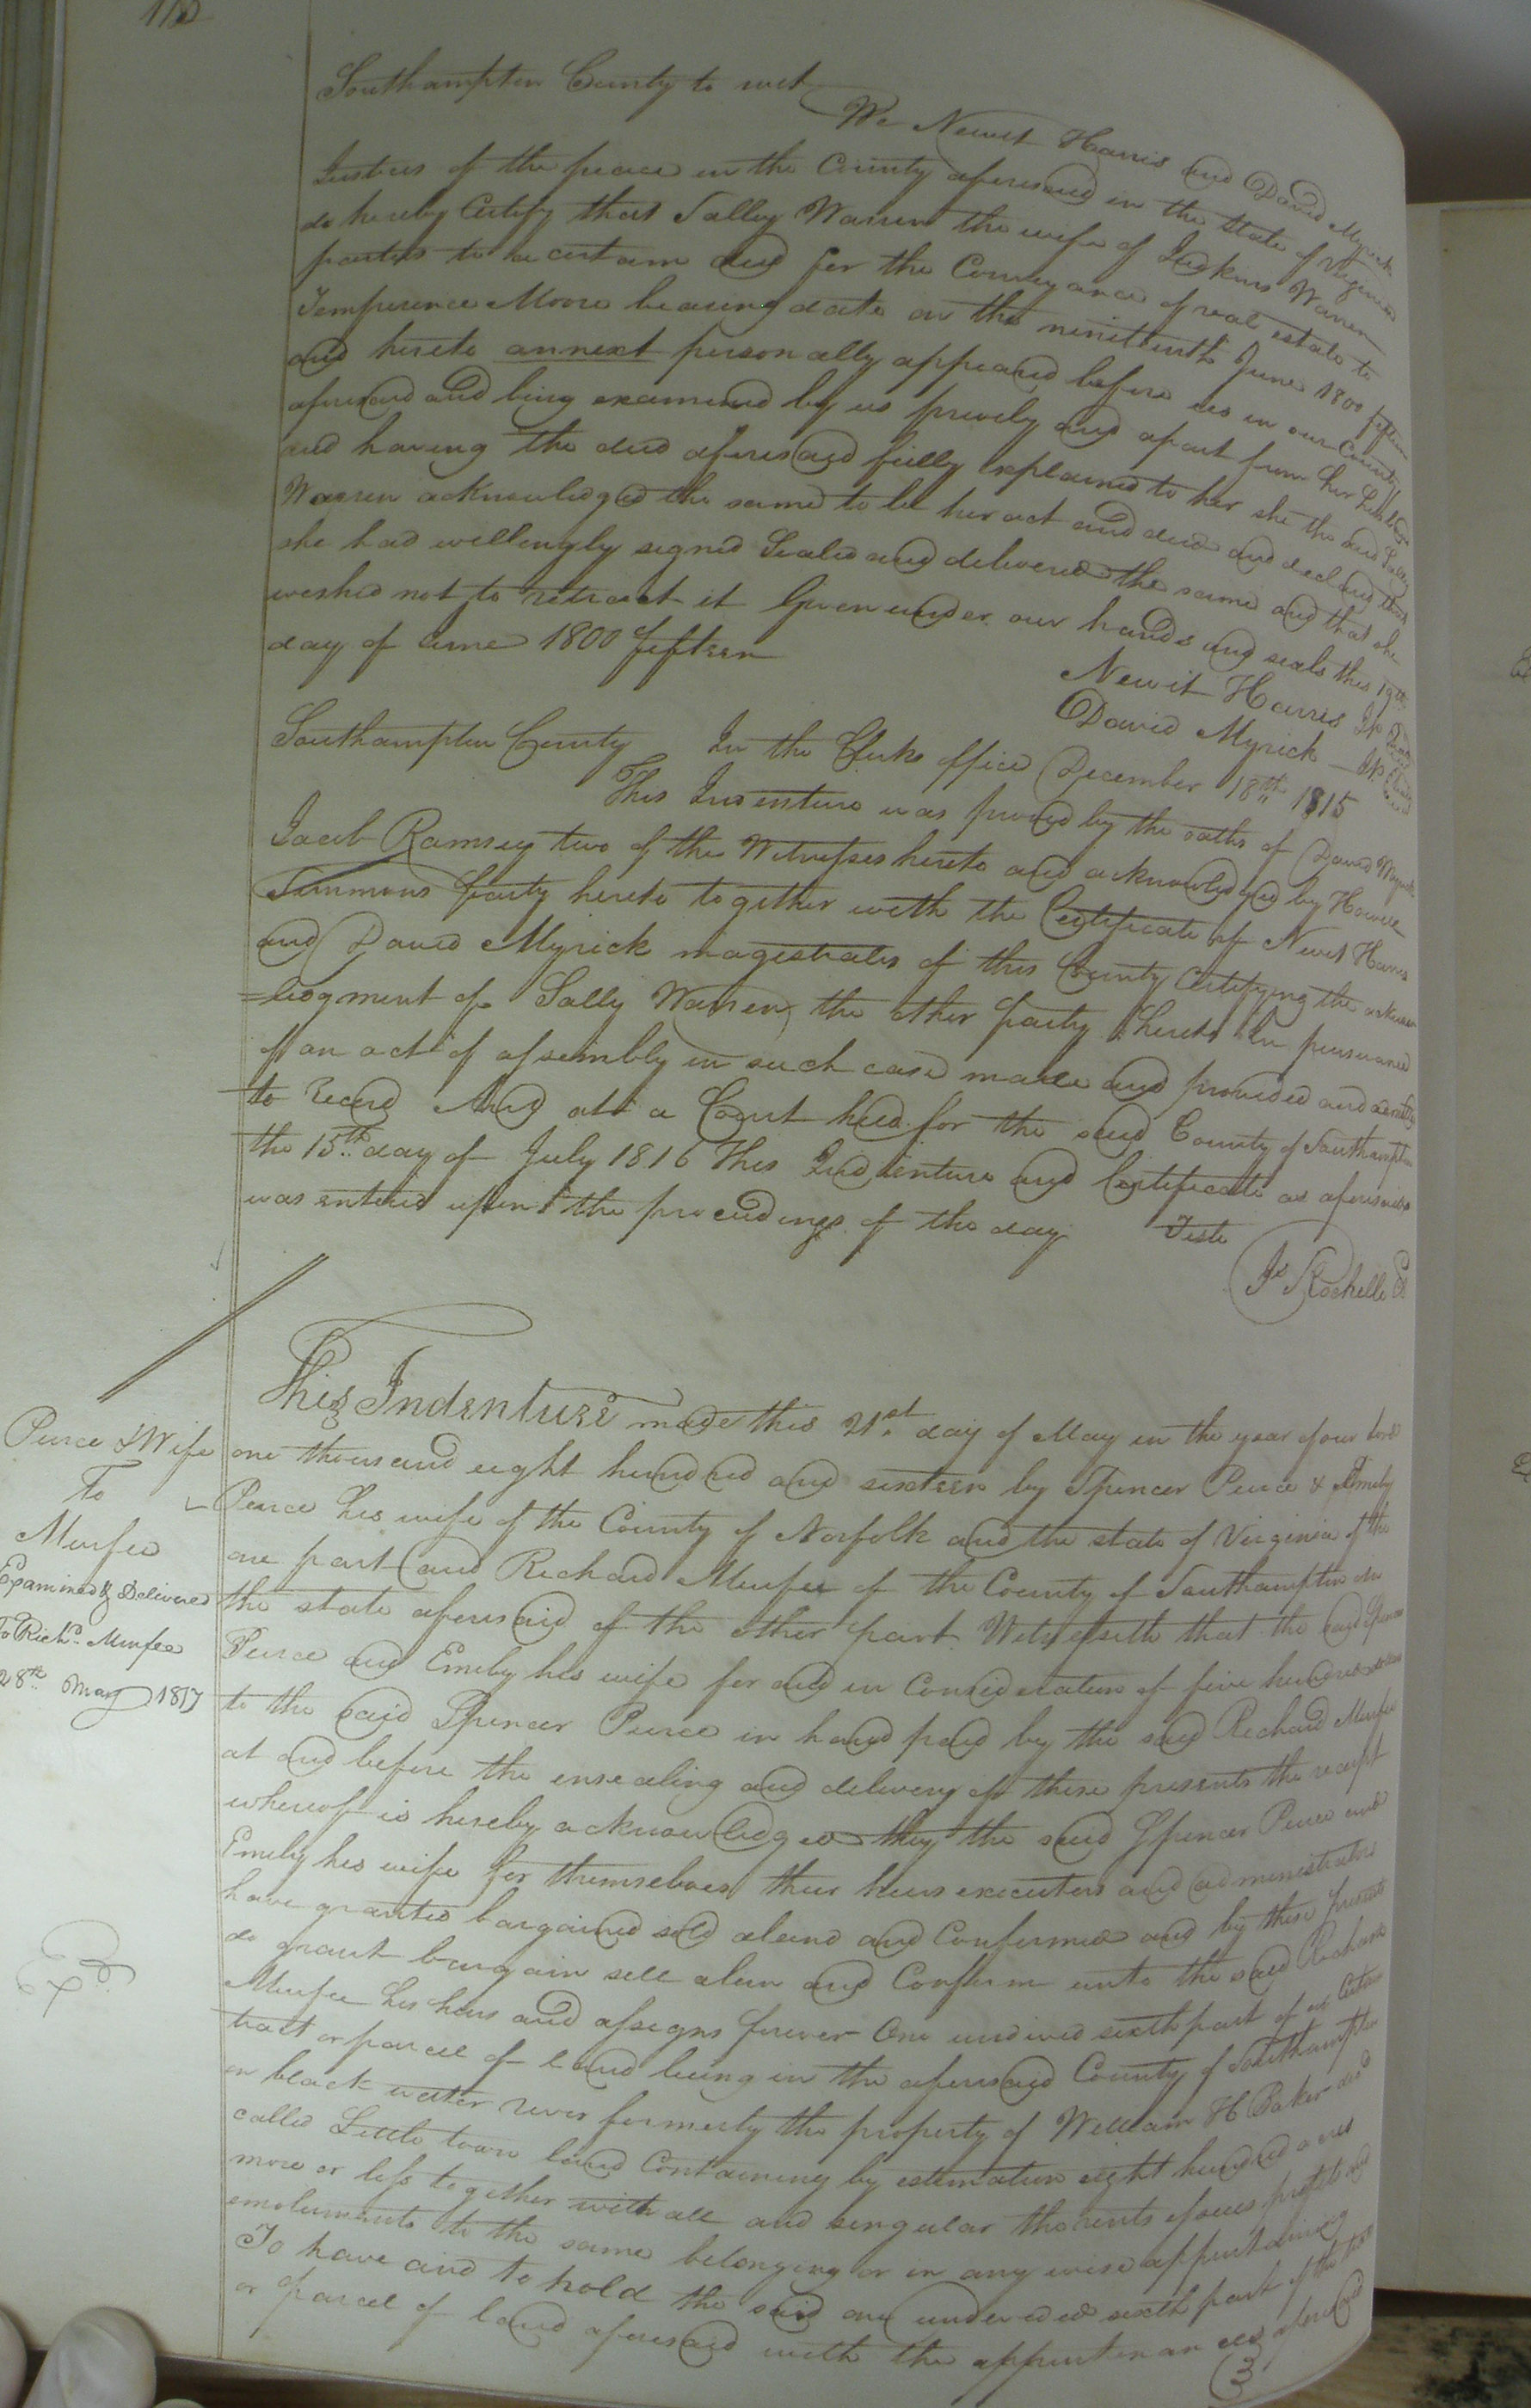 Southampton County to wit
We Newit Harris and David Myrick
Justices of the peace in the County aforesaid in the state of Virginia
do hereby Certify that Sally Warren the wife of Judkins Warren
parties to a certain deed for the Conveyance of real estate to
Temperence Moore bearing date on the niniteenth June 1800 fifteen
and hereto annext personally appeared before us in our County
aforesaid and being examined by us prively and apart from her husband
and having the deed aforesaid fully explained to her she the said Sally
Warren acknowledged the same to be her act and deed and declared that
she had willingly signed Sealed and delivered the same and that she
wished not to retract it Given under our hands and seals this 19th
day of June 1800 fifteen
Newit Harris JP
David Myrick JP
Southampton County In the Clerks office December 18th 1815
This Indenture was proved by the oaths of David Myrick
Jacob Ramsey two of the Witnesses hereto and acknowledged by Howell
Simmons party hereto together with the Certificate of Newit Harris
and David Myrick magistrates of this County Certifying the acknow
=ledgment of Sally Warren the other party thereto In pursuance
of an act of assembly in such case made and provided and admitted
to Record And at a Court held for the said County of Southampton
the 15th day of July 1816 This Indenture and Certificate as aforesaid
was entered upon the proceedings of the day Teste
Js Rochelle
This Indenture made this 21st day of May in the year of our Lord
one thousand eight hundred and sixteen by Spencer Peirce & Emely
Pearce his wife of the County of Norfolk and the state of Virginia of the
one part and Richard Murfee of the County of Southampton in
the state aforesaid of the other part. Witnesseth that the said Spencer
Peirce and Emely his wife for and in Consideration of five hundred dollars
to the said Spencer Peirce in hand paid by the said Richard Murfee
at and before the ensealing and delivery of these presents the receipt
whereof is hereby acknowledged they the said Spencer Peirce and
Emely his wife for themselves their heirs executors and administrators
have granted bargained sold aliend and Confirmed and by these presents
do grant bargain sell alien and Confirm unto the said Richard
Murfee his heirs and assigns forever One undived sixth part of a certain
tract or parcel of land lieing in the aforesaid County of Southampton
on black water river formerly the property of William H Baker decd
called Little town land Containing by estimation eight hundred acres
more or less together with all and singular the rents issues profits and
emoluments to the same belonging or in any wise appertaining
To have and to hold the said one undivided sixth part of the tract
or parcel of land aforesaid with the appurtenances aforesaid
(3
Peirce & Wife
To
Murfee
Examined & Delivered
To Richd. Murfee
28th May 1817
Exd.